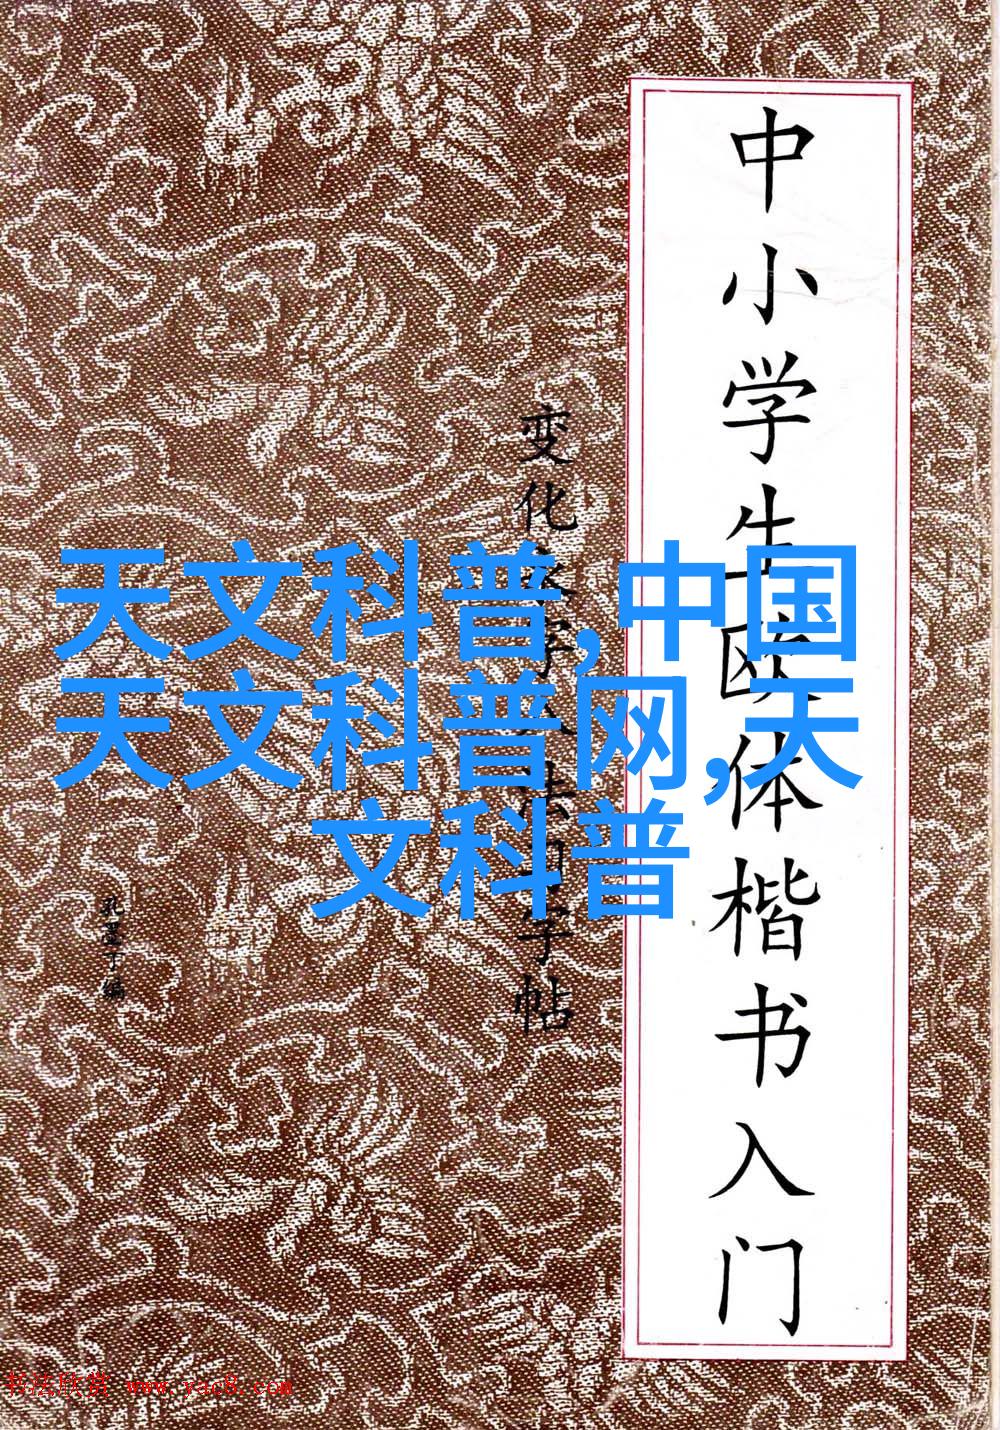 中小学生欧体楷书入门
变化永字八法字帖
孔墨丁编
天文科普,中国
天文科普网,天
文科普
书法欣赏 www.yac8.com